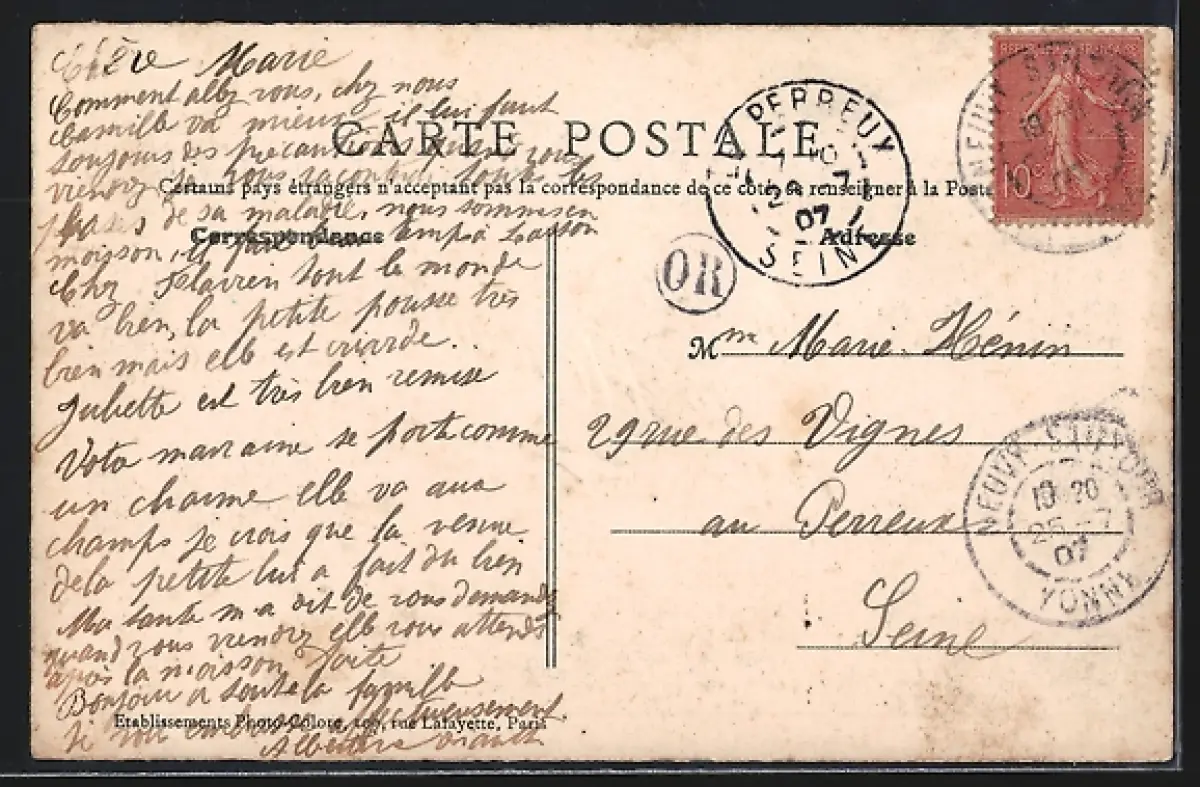 Chère Marie
Comment allez vous, chez nous
Camille va mieux il lui faut
toujours des précautions quand vous
viendrez vous toutes les
phases de sa maladie, nous sommes en
moisson, il fait
Chez Flavien tout le monde
va bien, la petite pousse très
bien mais elle est criarde.
Juliette est très bien remise
Vota marraine se porte comme
un charme elle va aux
champs je crois que la venue
de la petite lui a fait du bien
Ma tante m'a dit de vous demander
quand vous viendrez elle vous attend
après la moisson faite
Bonjour a toute la famille
Je vous embrasse affectueusement
CARTE POSTALE
Certains pays étrangers n'acceptant pas la correspondance de ce côté, se renseigner à la Poste
Correspondance
Adresse
Mme Marie Hénin
29 rue des Vignes
au Perreux
Seine
Etablissements Photo-Colore, 109, rue Lafayette, Paris
REPUBLIQUE FRANÇAISE
10c
LE PERREUX
07
SEINE
OR
NEUVY-SAUTOUR
10 20
25 -7
07
YONNE